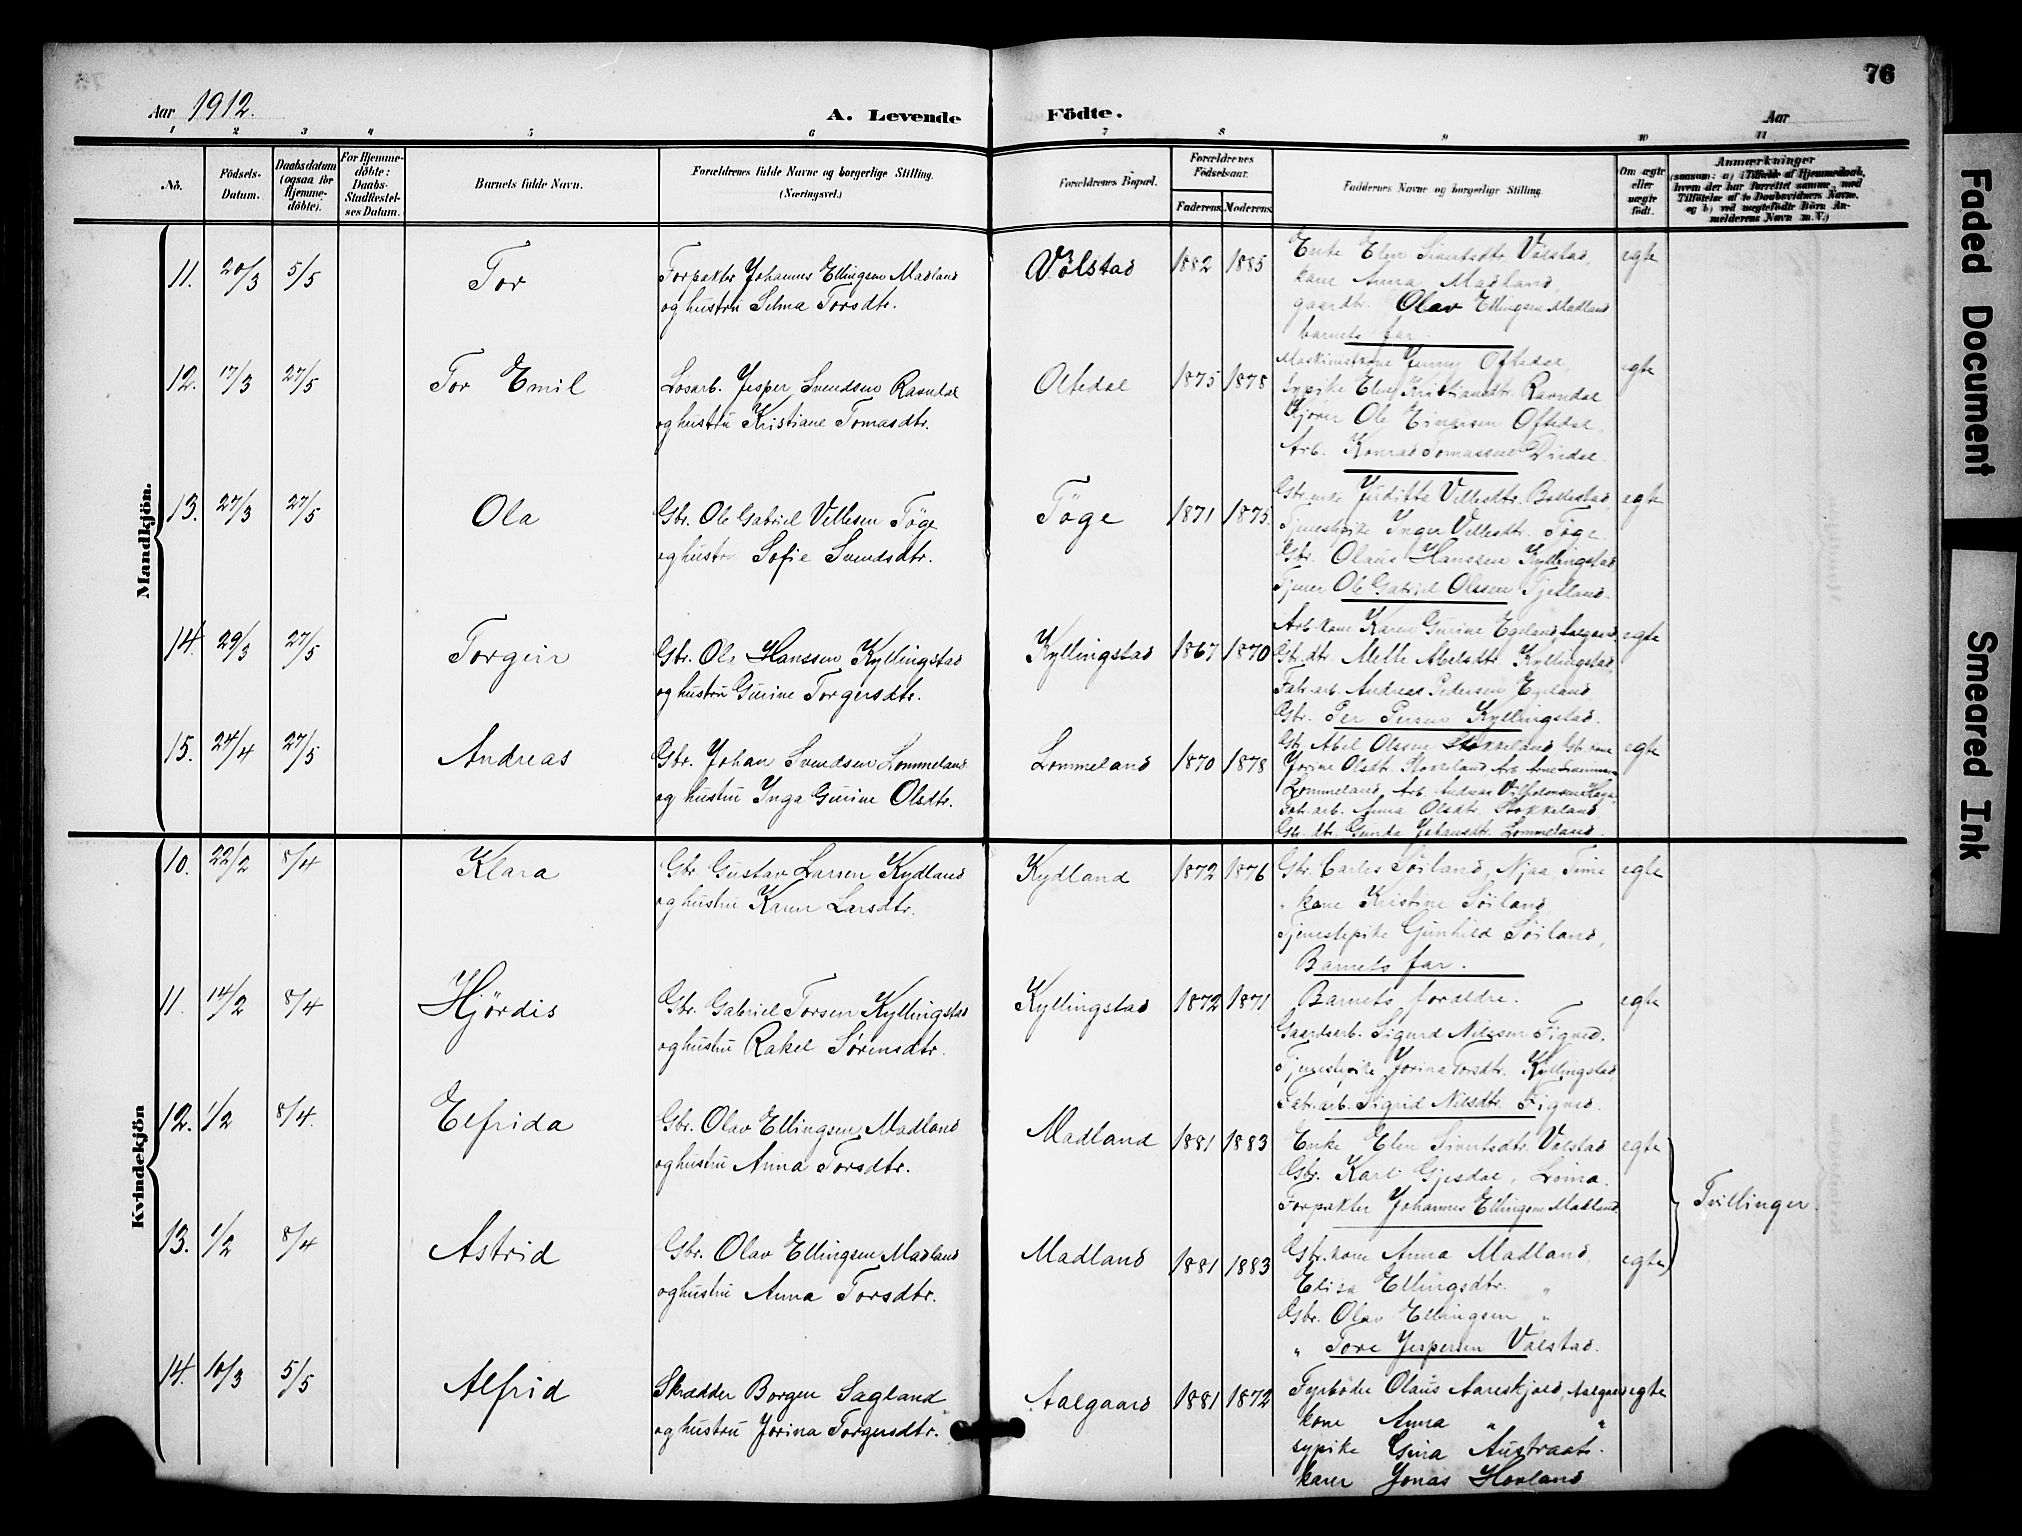 76
Aar 1912. A. Levende Födte. Aar
1 2 3 4 5 6 7 8 9 10 11
No. Födsels-Datum. Daabsdatum (ogsaa for Hjemmedöbte). For Hjemmedöbte: Daabs-Stadfestelses Datum. Barnets fulde Navn. Forældrenes fulde Navne og borgerlige Stilling. (Næringsvei.) Forældrenes Bopæl. Forældrenes Födselsaar. Faderens Moderens Faddernes Navne og borgerlige Stilling. Om ægte eller uægte födt. Anmærkninger
(saasom: a) i Tilfælde af Hjemmedaab, hvem der har forrettet samme, med Tilföielse af to Daabsvidners Navne, og b) ved uægtefödte Börn Anmelderens Navn m. V.)
Mandkjön.
11. 20/3 5/5 Tor Forpakter Johannes Ellingsen Madland Völstad 1882 1885 Enke Elen Sivertsdtr. Vølstad, egte
og hustru Selma Torsdtr. kone Anna Madland,
gaardbr. Olav Ellingsen Madland
barnets far.
12. 17/3 27/5 Tor Emil Løsarb. Jesper Svendsen Ravndal Oltedal 1875 1878 Maskinistkone Jenny Oftedal, egte
og hustru Kristiane Tomasdtr. Sypike Elen Kristiansdtr. Ravndal
Ole Einarsen Oftedal,
Arb. Konrad Tomassen Dirdal.
13. 27/3 27/5 Ola Gbr. Ole Gabriel Villesen Tøge Tøge 1871 1875 Gbr.enke Juditta Villesdtr. egte
og hustru Sofie Svendsdtr. Tjenestepike Inger Villesdtr. Tøge
Gbr. Olaus Hanssen Kyllingstad
Tjener Ole Gabriel Olssen Tjetland.
14. 29/3 27/5 Torgeir Gbr. Ole Hanssen Kyllingstad Kyllingstad 1867 1870 Arb.kone Karen Gurine Egeland, Aalgaard, egte
og hustru Gurine Torgersdtr. Gbr. dtr. Mette Abelsdtr. Kyllingstad,
Fabr.arb. Andreas Pedersen Egeland
Gbr. Per Persen Kyllingstad.
15. 24/4 27/5 Andreas Gbr. Johan Svendsen Lommeland Lommeland 1870 1878 Gbr. Abel Olssen Stokkeland, Gbr.kone egte
og hustru Inga Gurine Olsdtr. Jorine Olsdtr. Stokkeland Arb. Arne
Lommeland, Arb. Andreas Vilhelmsen
Fabr.arb. Anna Olsdtr. Stokkeland
Gbr. dtr. Gunda Johansdtr. Lommeland.
Kvindekjön
10. 22/2 8/4 Klara Gbr. Gustav Larsen Kydland Kydland 1872 1876 Gbr. Carles Søiland, Njaa Time egte
og hustru Karen Larsdtr. " kone Kristine Søiland
Tjenestepike Gunhild Søiland,
Barnets far.
11. 14/2 8/4 Hjørdis Gbr. Gabriel Torsen Kyllingstad Kyllingstad 1872 1871 Barnets forældre. egte
og hustru Rakel Sørensdtr. Gaardsarb. Sigurd Nilssen Figved.
Tjenestepike Jorina Torsdtr. Kyllingstad,
Fabr.arb. Sigrid Nilsdtr. Figved.
12. 1/2 8/4. Elfrida Gbr. Olav Ellingsen Madland Madland 1881 1883 Enke Elen Sivertsdtr. Vølstad egte
og hustru Anna Torsdtr. Gbr. Karl Gjesdal, Lima.
Forpakter Johannes Ellingsen Madland
Tvillinger.
13. 1/2 8/4 Astrid Gbr. Olav Ellingsen Madland Madland 1881 1883 Gbr.kone Anna Madland, egte
og hustru Anna Torsdtr. Elisa Ellingsdtr. "
Gbr. Olav Ellingsen "
" Tore Jespersen Vølstad.
14. 10/3 5/5 Alfrid Skrædder Borgen Sagland Aalgaard 1881 1872 Fyrbøder Olaus Aareskjold, Aalgaard egte
og hustru Jorina Torgersdtr. kone Anna " "
sypike Gina Austraat.
karer Jonas Hovland
Faded Document
Smeared Ink